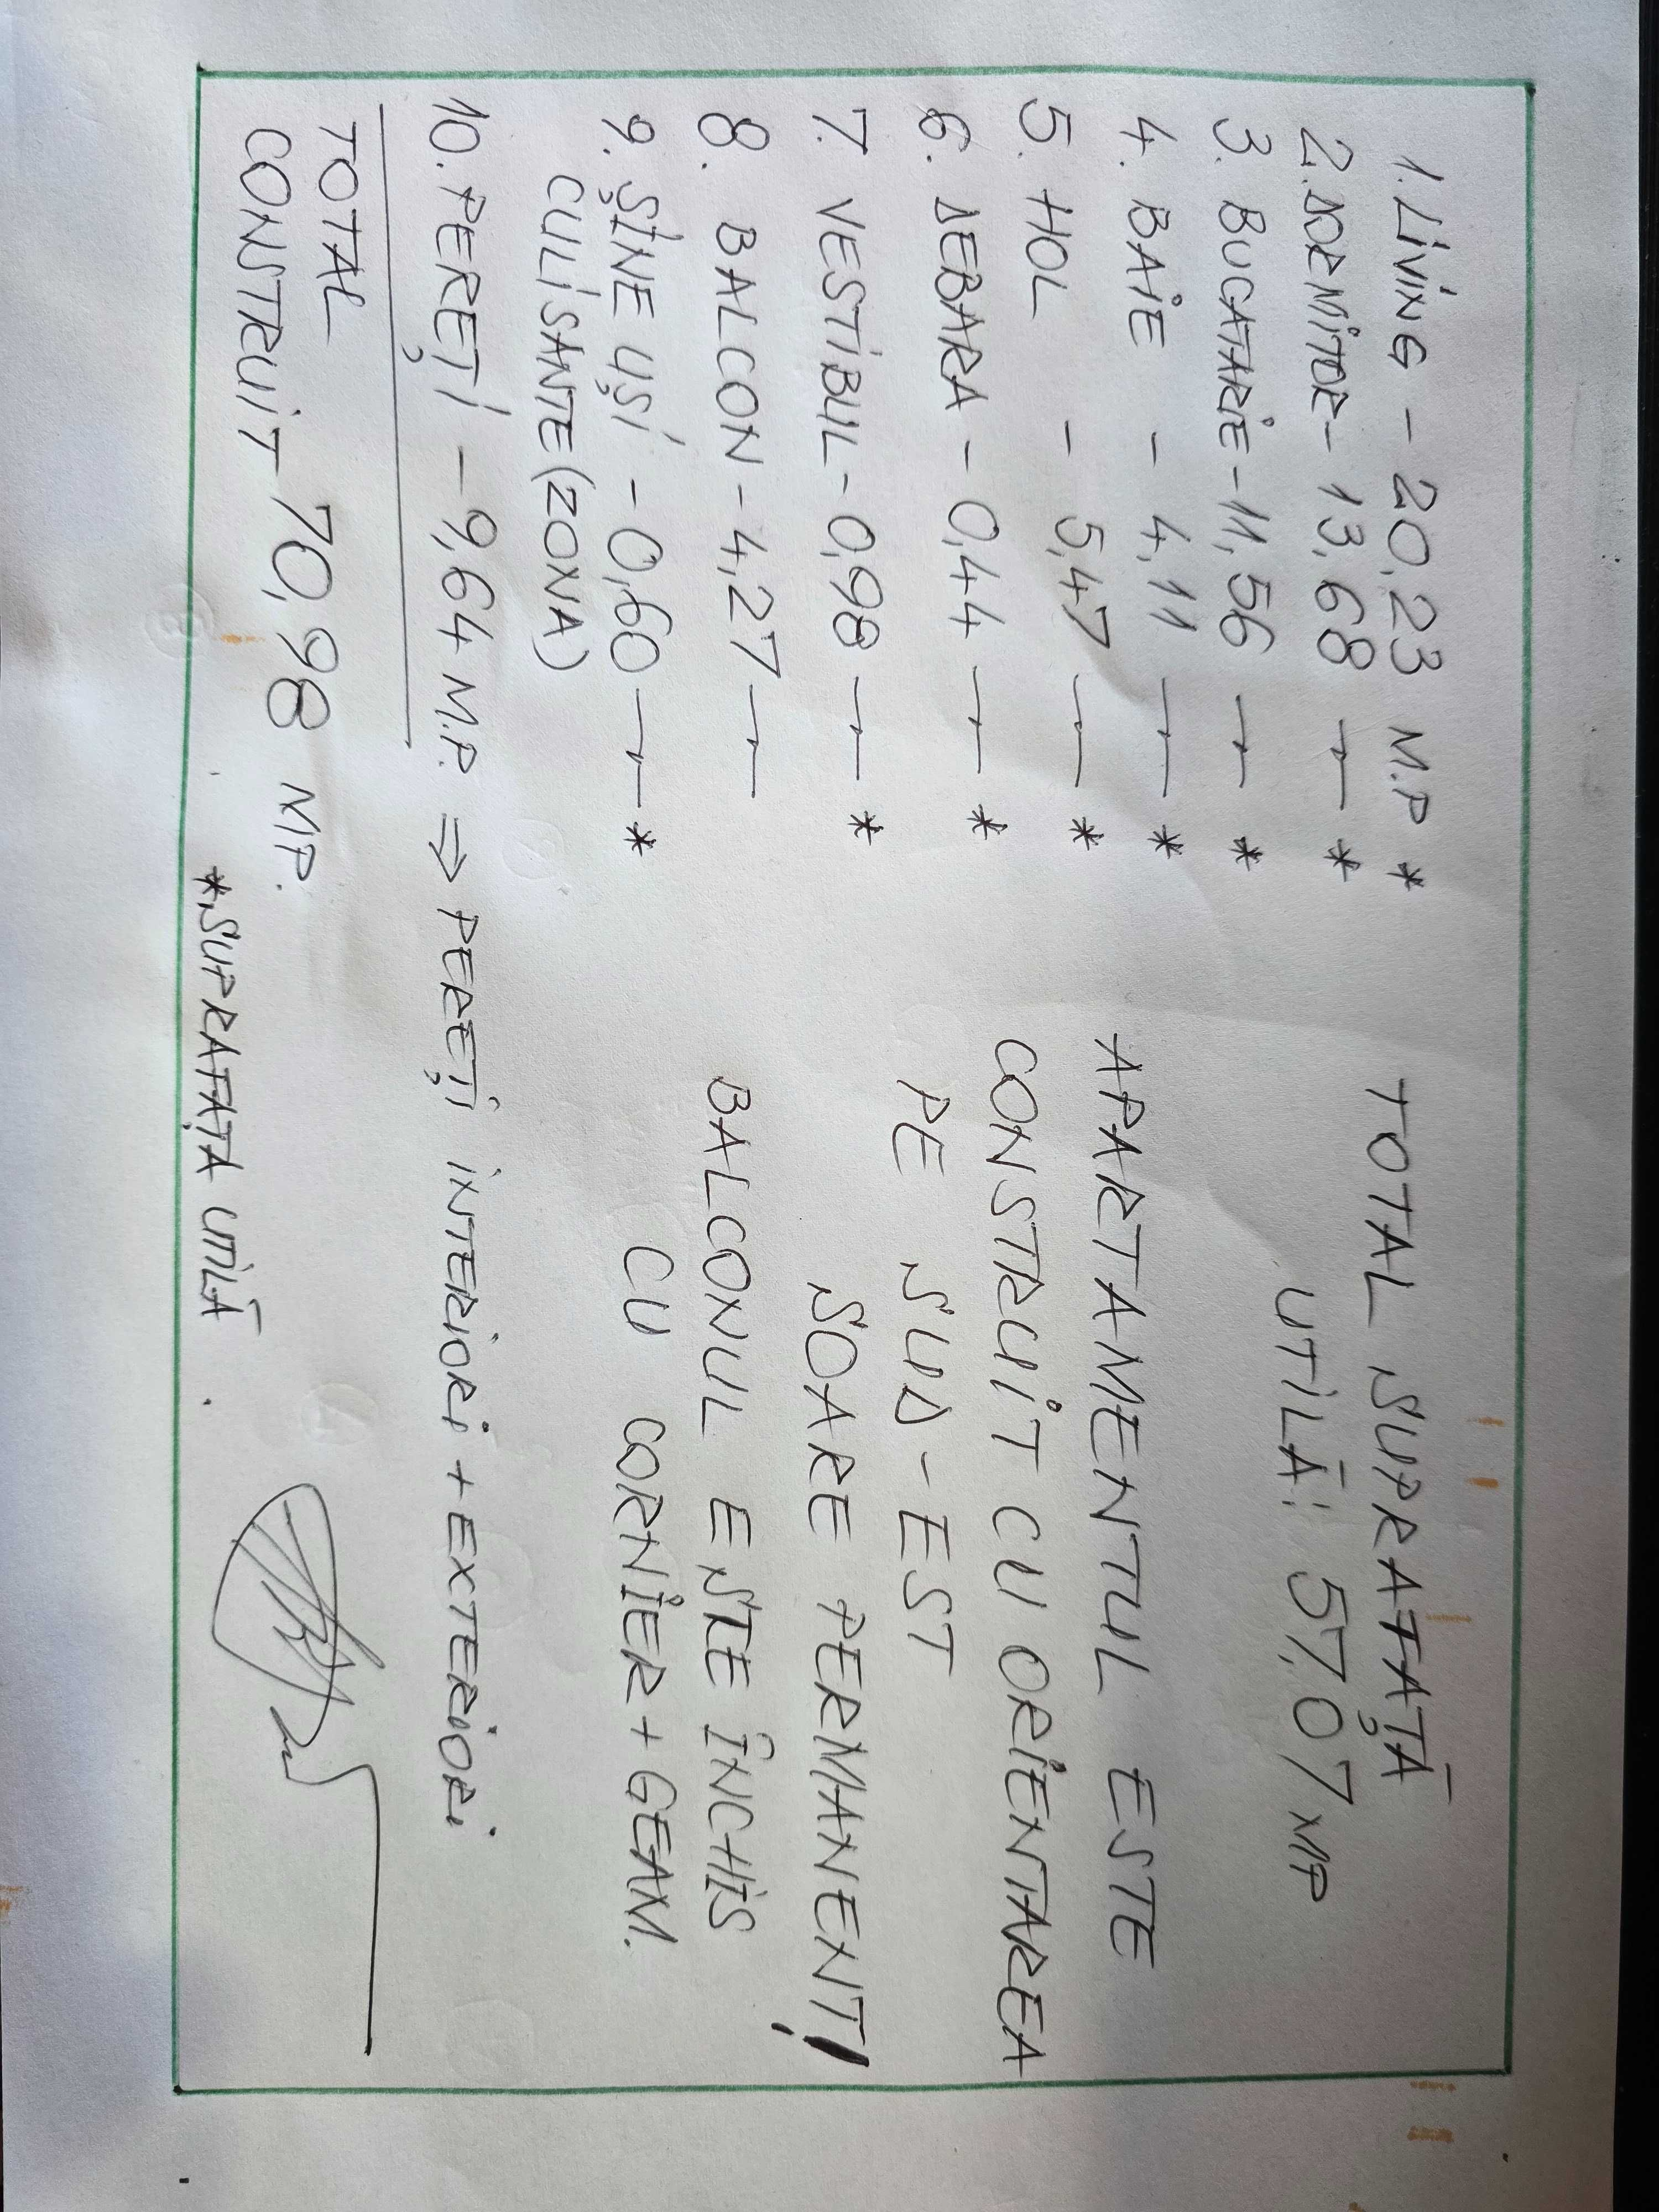 1. LiViNG - 20,23 M.P *
2. DORMiTOR - 13,68 —〃— *
3. BUCATARiE - 11,56 —〃— *
4. BAiE - 4,11 —〃— *
5. HOL - 5,47 —〃— *
6. DEBARA - 0,44 —〃— *
7. VESTiBUL - 0,98 —〃— *
8. BALCON - 4,27 —〃—
9. ŞiNE UŞi - 0,60 —〃— *
CULiSANTE (ZONA)
10. PEREŢi - 9,64 M.P. ⇒ PEREŢi iNTERiORi + EXTERiORi
TOTAL
CONSTRUiT - 70,98 MP.
*SUPRAFAŢA UTiLĂ
TOTAL SUPRAFAŢĂ
UTiLĂ: 57,07 MP
APARTAMENTUL ESTE
CONSTRUiT CU ORiENTAREA
PE SUD - EST
SOARE PERMANENT!
BALCONUL ESTE ÎNCHiS
CU CORNiER + GEAM.